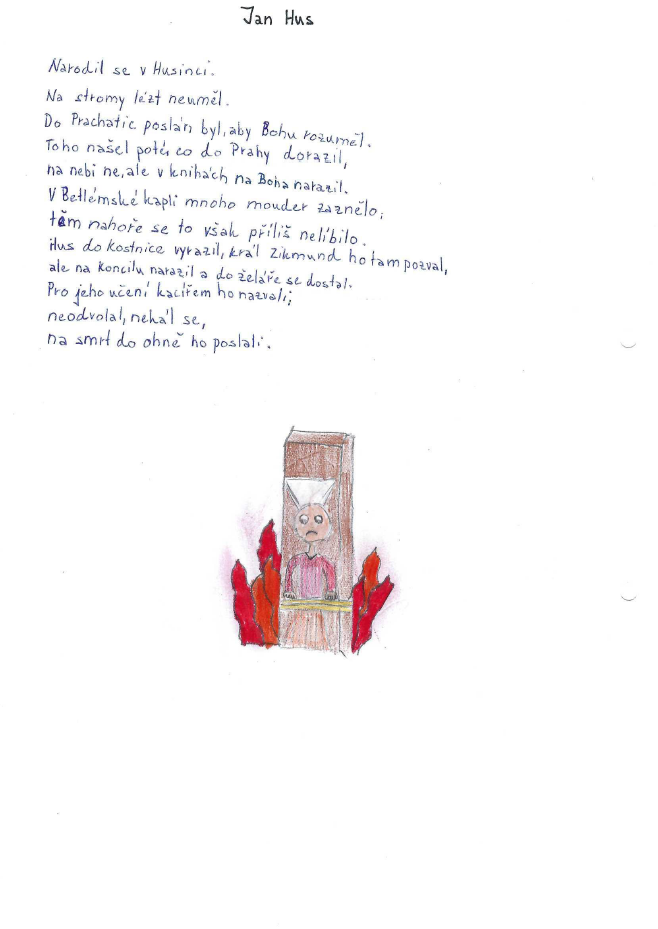 Jan Hus
Narodil se v Husinci.
Na stromy lézt neuměl.
Do Prachatic poslán byl, aby Bohu rozuměl.
Toho našel poté, co do Prahy dorazil,
na nebi ne, ale v knihách na Boha narazil.
V Betlémské kapli mnoho mouder zaznělo;
těm nahoře se to však příliš nelíbilo.
Hus do kostnice vyrazil, král Zikmund ho tam pozval,
ale na koncilu narazil a do želáře se dostal.
Pro jeho učení kacířem ho nazvali;
neodvolal, nekál se,
na smrt do ohně ho poslali.